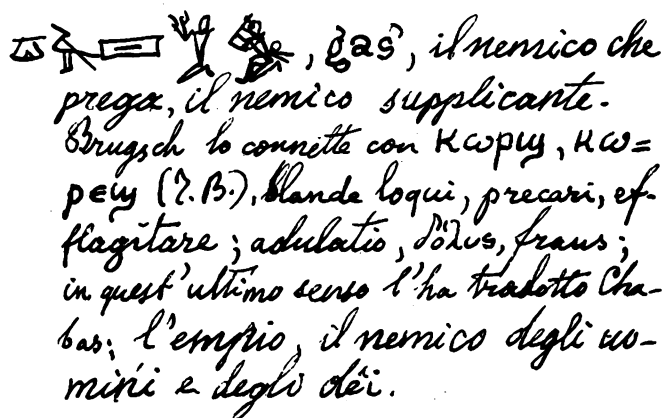 , gaś, il nemico che
prega, il nemico supplicante.
Brugsch lo connette con ⲕⲱⲣϣ, ⲕⲱ=
ⲣⲉϣ (T.B.), blande loqui, precari, ef-
flagitare; adulatio, δόλυς, fraus;
in quest'ultimo senso l'ha tradotto Cha-
bas; l'empio, il nemico degli uo-
mini e degli dêi.